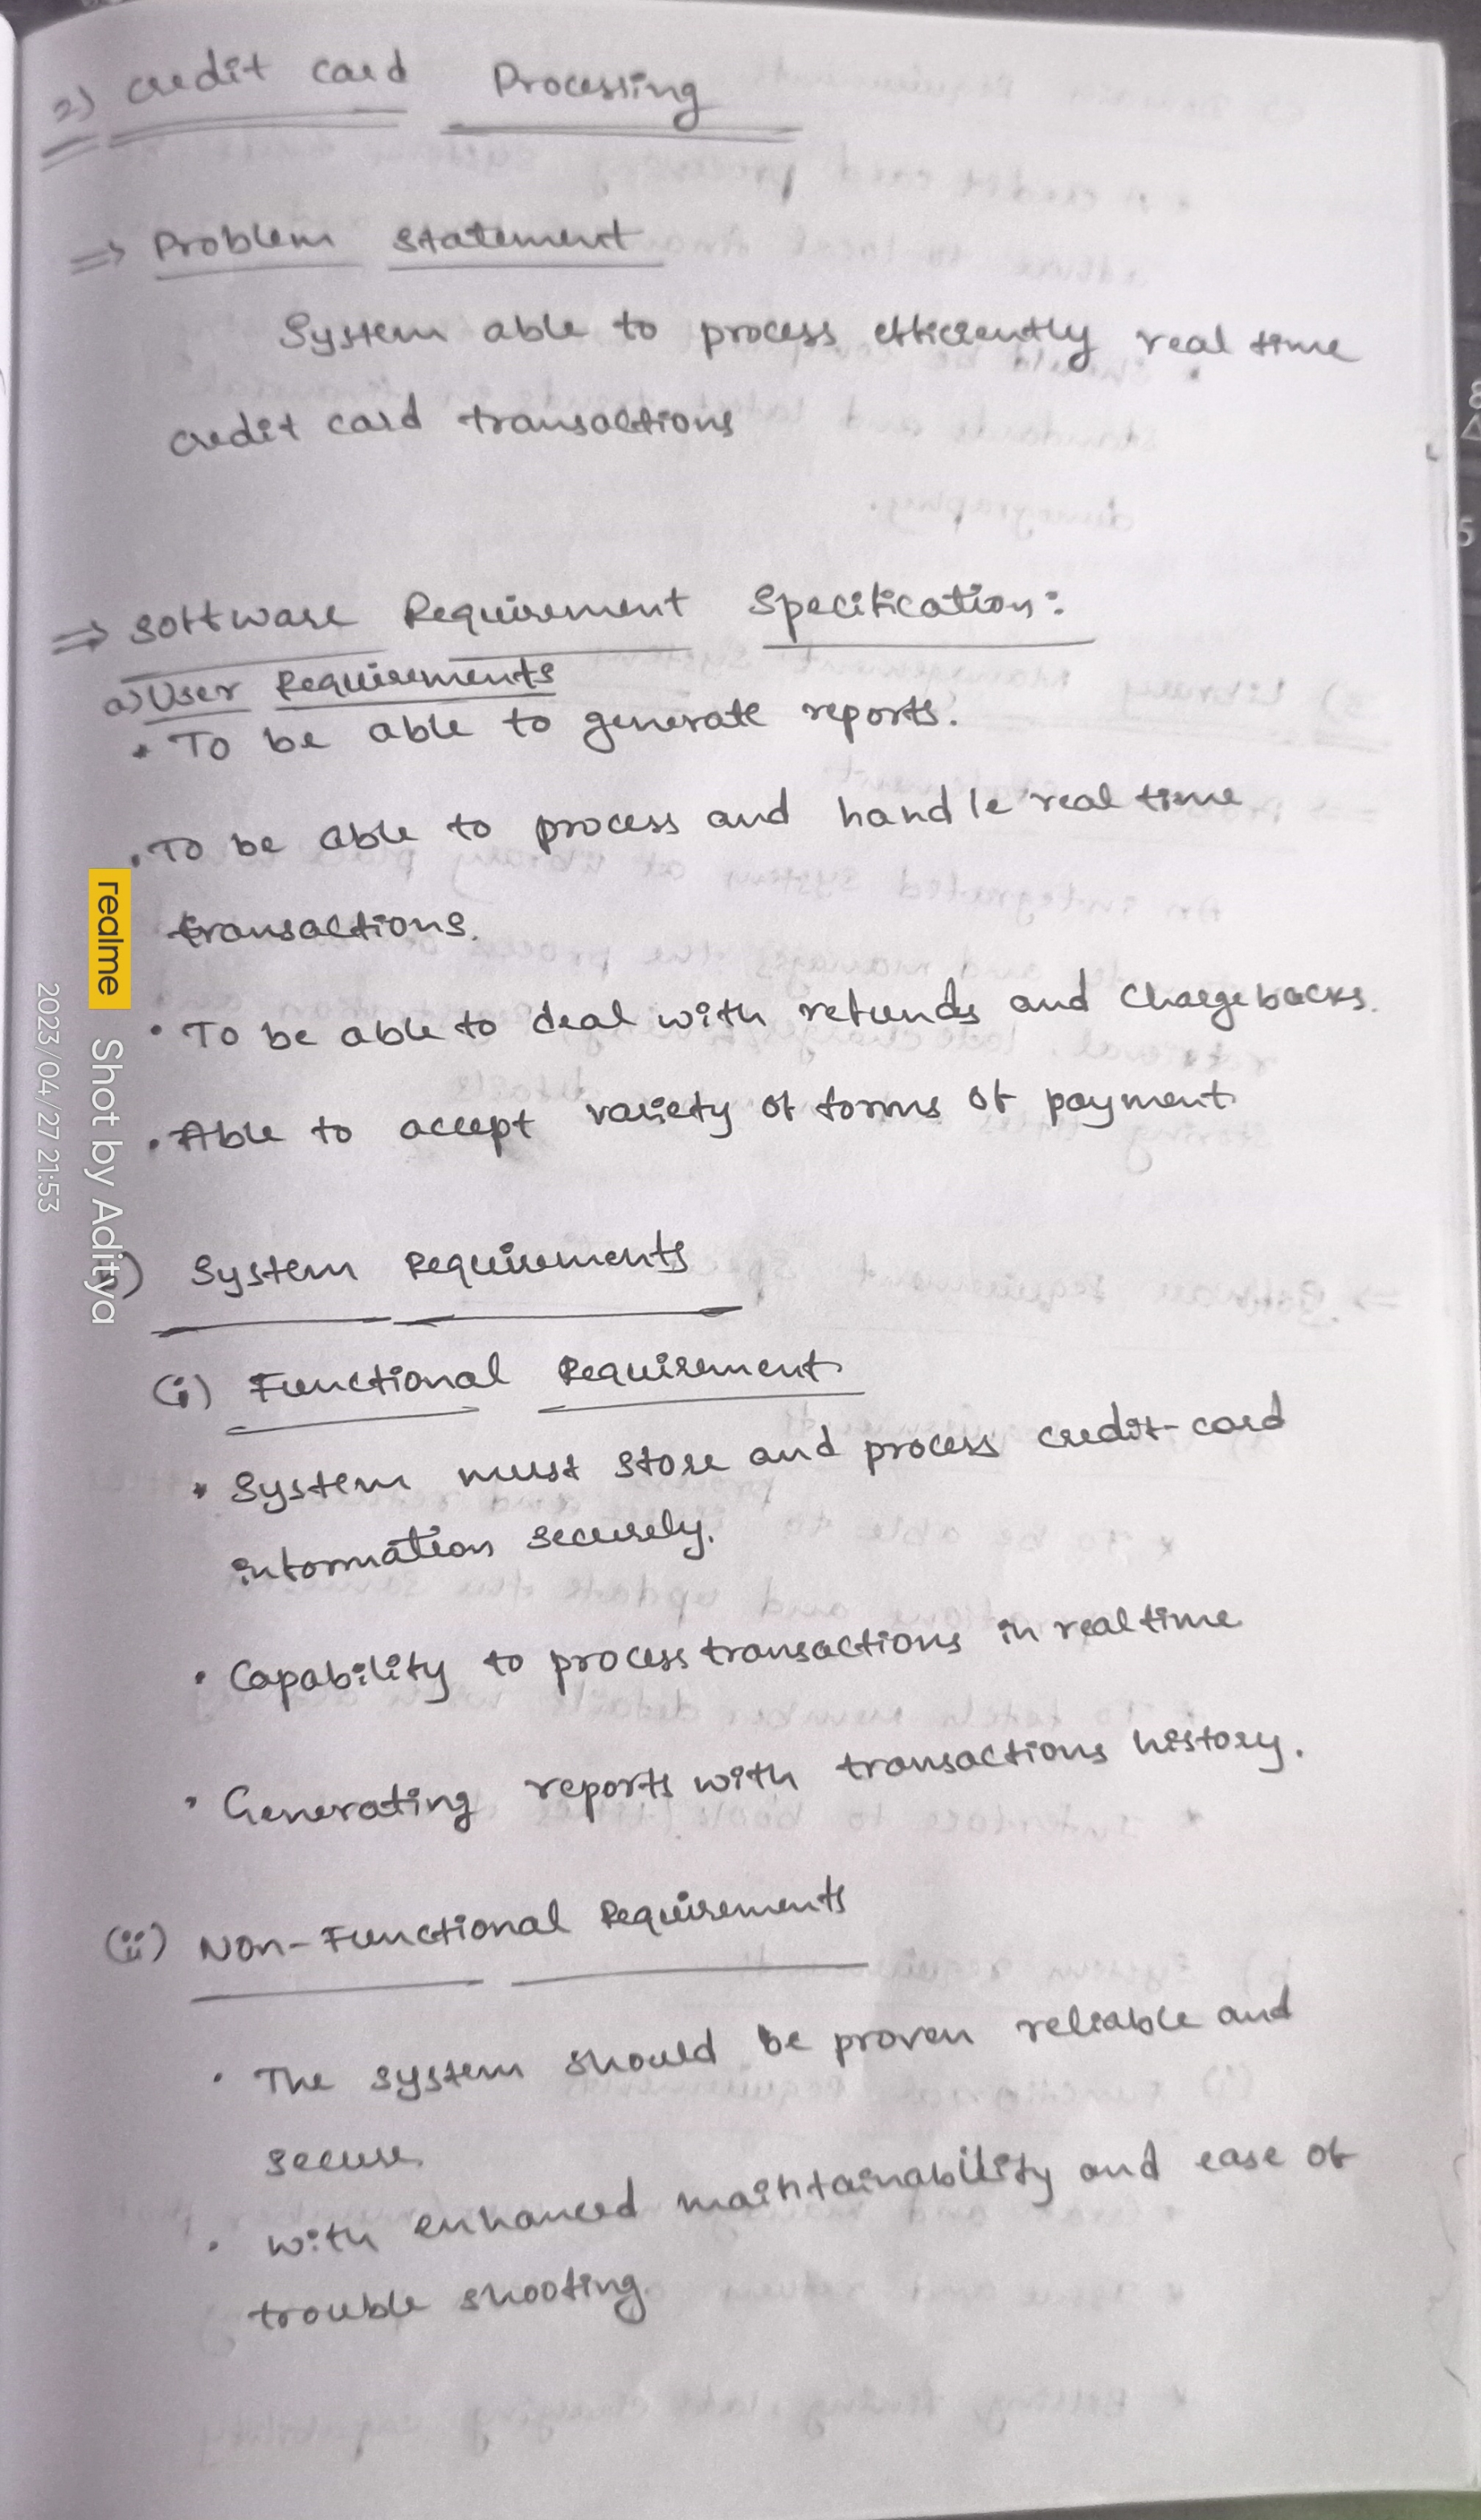 2) Credit card Processing
⇒ Problem statement
System able to process efficiently real time
credit card transactions
⇒ Software Requirement Specification:
a) User Requirements
• To be able to generate reports.
• To be able to process and handle real time
transactions.
• To be able to deal with refunds and Chargebacks.
• Able to accept variety of forms of payment
) System Requirements
(i) Functional Requirement
• System must store and process credit-card
information securely.
• Capability to process transactions in realtime
• Generating reports with transactions history.
(ii) Non-Functional Requirements
• The system should be proven reliable and
secure.
• with enhanced maintainability and ease of
trouble shooting.
realme Shot by Aditya
2023/04/27 21:53